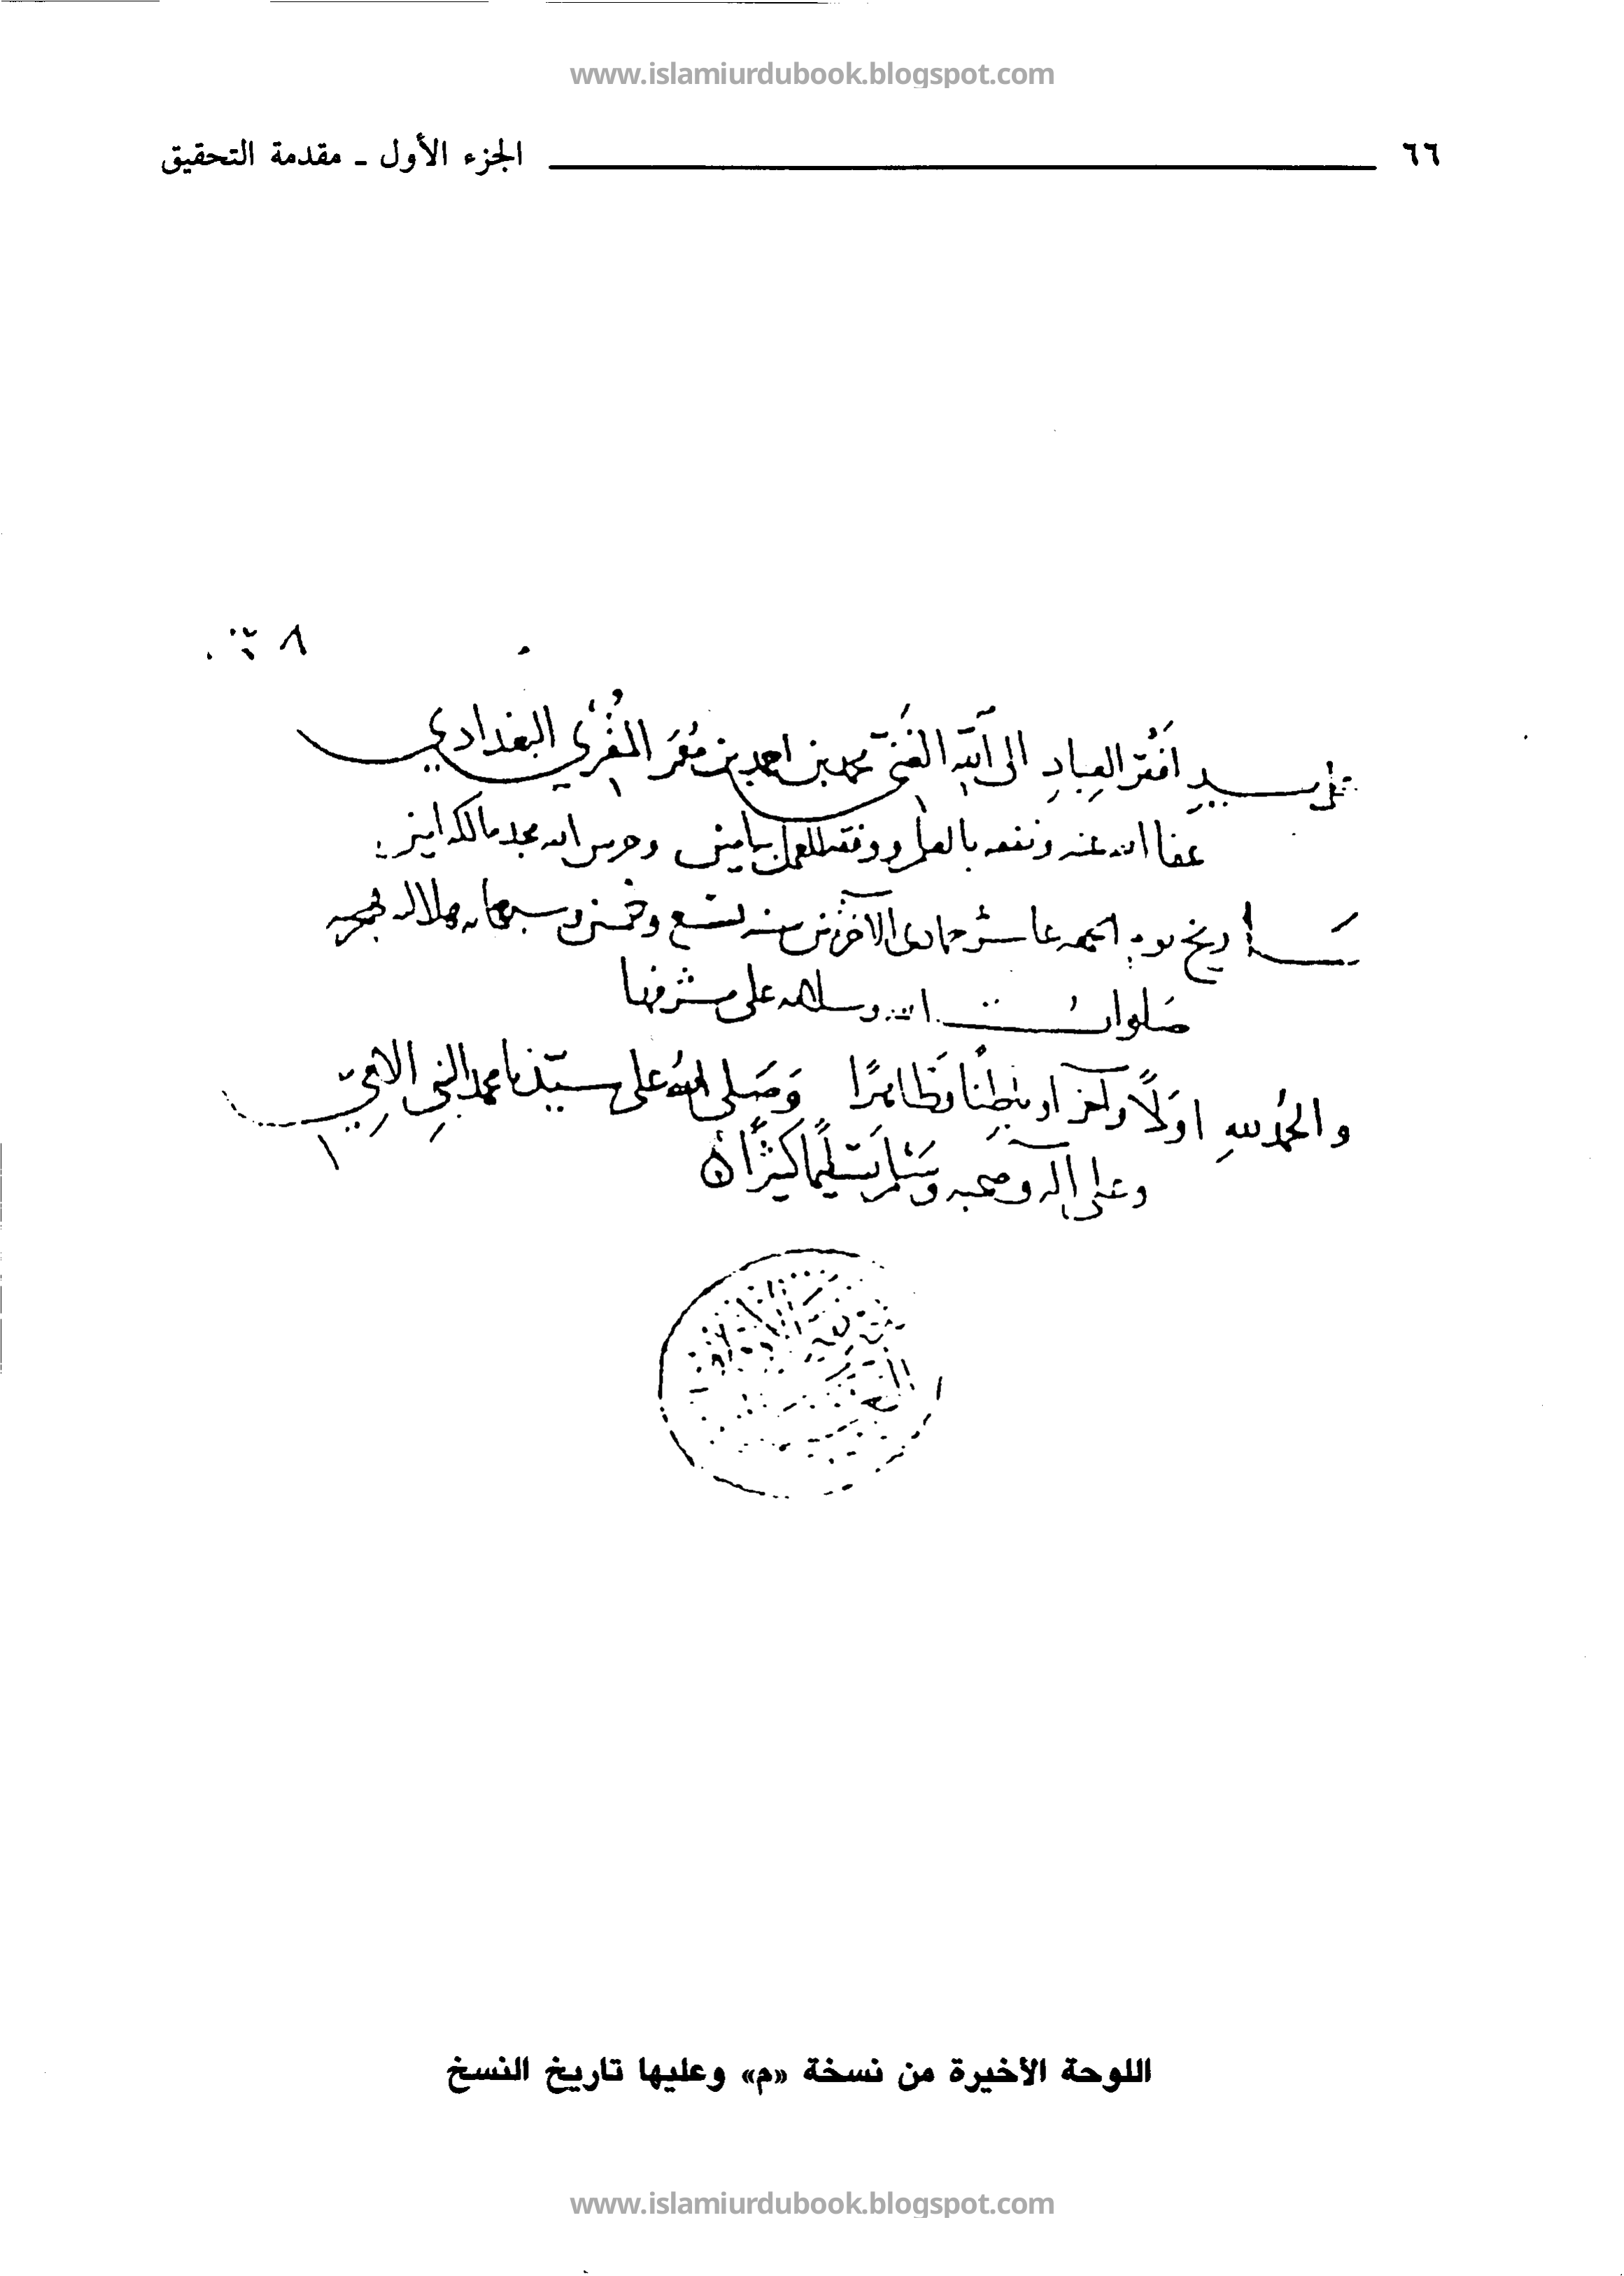 www.islamiurdubook.blogspot.com
٦٦ الجزء الأول ـ مقدمة التحقيق
٨
على يد افقر العباد الى الله الغنى محمد بن احمد بن معمر المقري البغدادي
عفا الله عنه ونفعه بالعلم ووفقه للعمل به امين وحرس الله مجد مالكه امين
تاريخ يوم الجمعه عاشر جمادى الآخرة من سنه تسع وخمسين وسبعمايه هلاليه هجريه
صلوات الله وسلامه على مشرفها
والحمد لله اولاً وآخرا وباطنًا وظاهرًا وصلى الله على سيدنا محمد النبي الامي
وعلى آله وصحبه وسلم تسليمًا كثيرًا
اللوحة الأخيرة من نسخة «م» وعليها تاريخ النسخ
www.islamiurdubook.blogspot.com